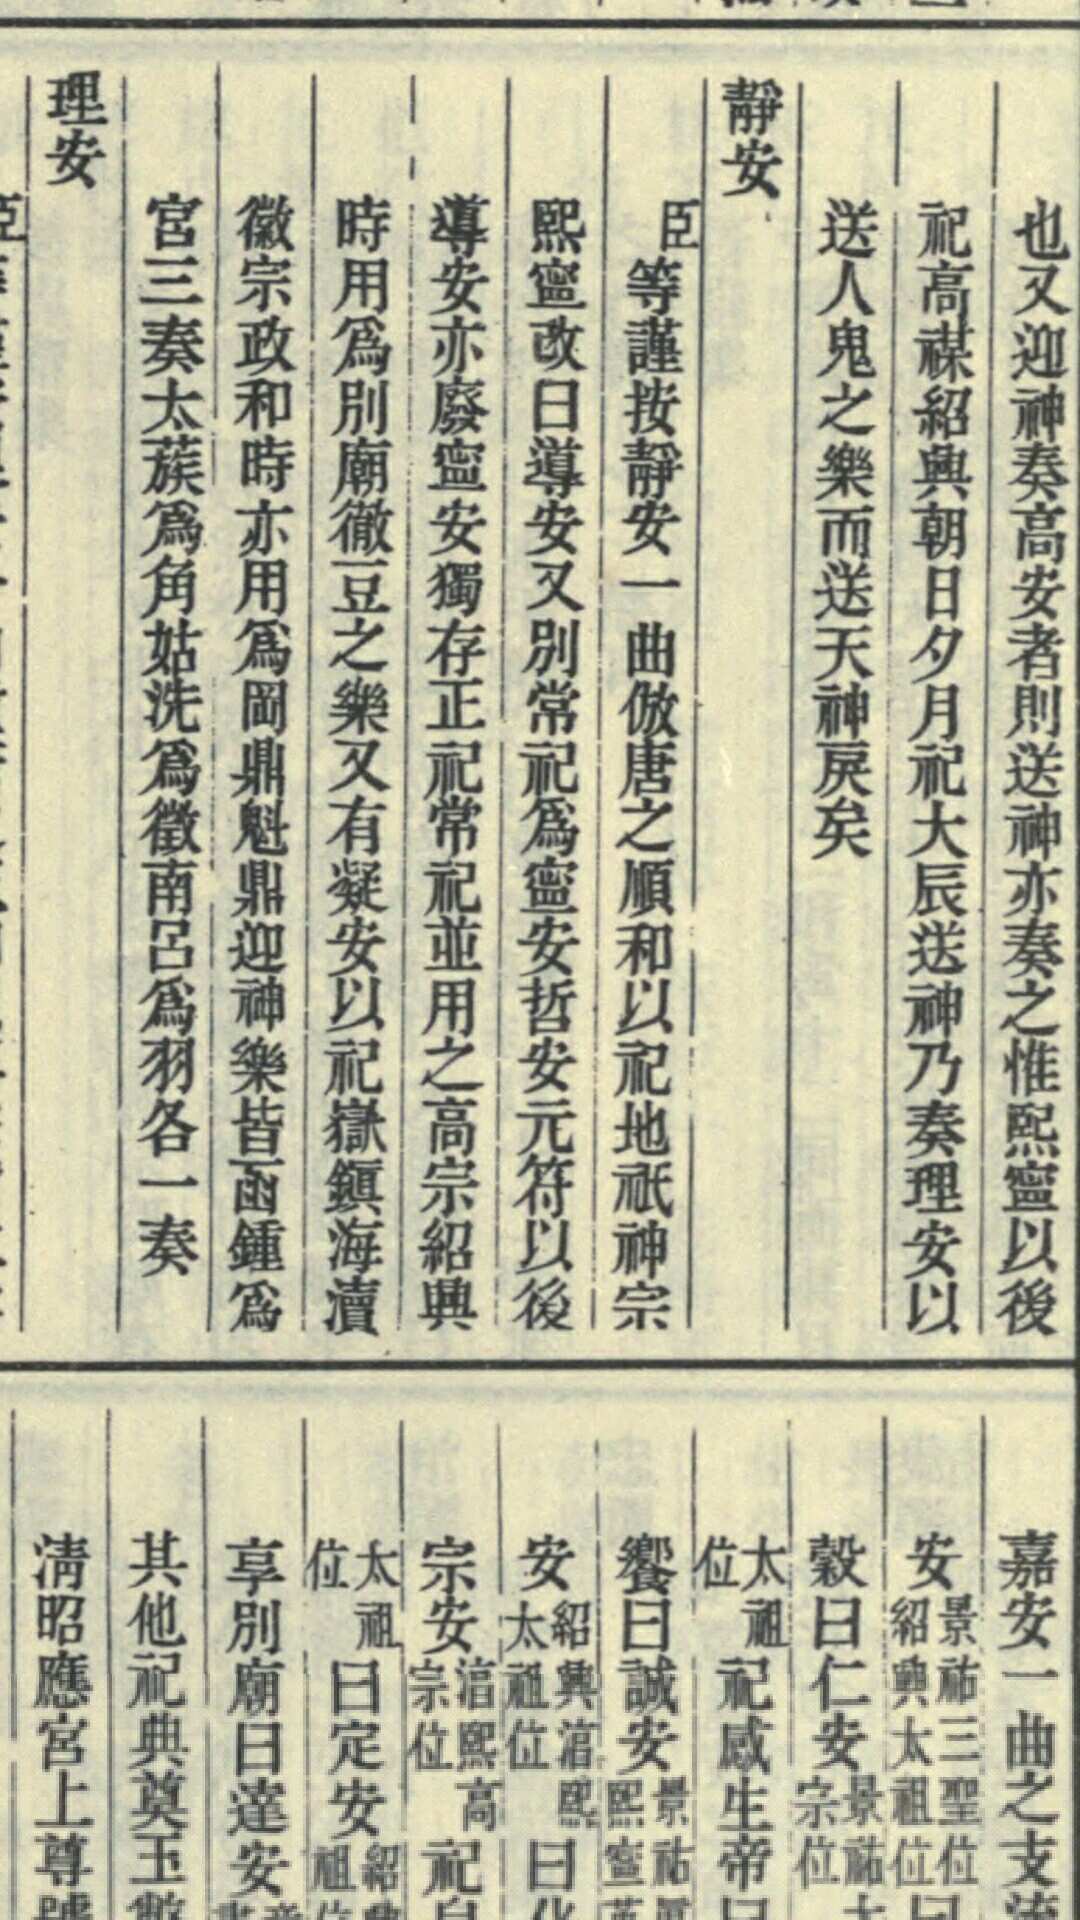 也又迎神奏高安者則送神亦奏之惟熙寧以後
祀高禖紹興朝日夕月祀大辰送神乃奏理安以
送人鬼之樂而送天神戾矣
靜安
臣等謹按靜安一曲倣唐之順和以祀地祇神宗
熙寧改曰導安又別常祀爲寧安哲安元符以後
導安亦廢寧安獨存正祀常祀並用之高宗紹興
時用爲別廟徹豆之樂又有凝安以祀嶽鎭海瀆
徽宗政和時亦用爲岡鼎魁鼎迎神樂皆函鍾爲
宮三奏太蔟爲角姑洗爲徵南呂爲羽各一奏
理安
臣
嘉安一曲之支
安景祐三聖位紹興太祖位曰
穀曰仁安景祐太宗位
太祖位祀感生帝曰
饗曰誠安景祐熙寧
安紹興淳熙太祖位曰化
宗安淳熙高宗位祀
太祖位曰定安紹興祖位
享別廟曰達安
其他祀典奠玉幣
淸昭應宮上尊號